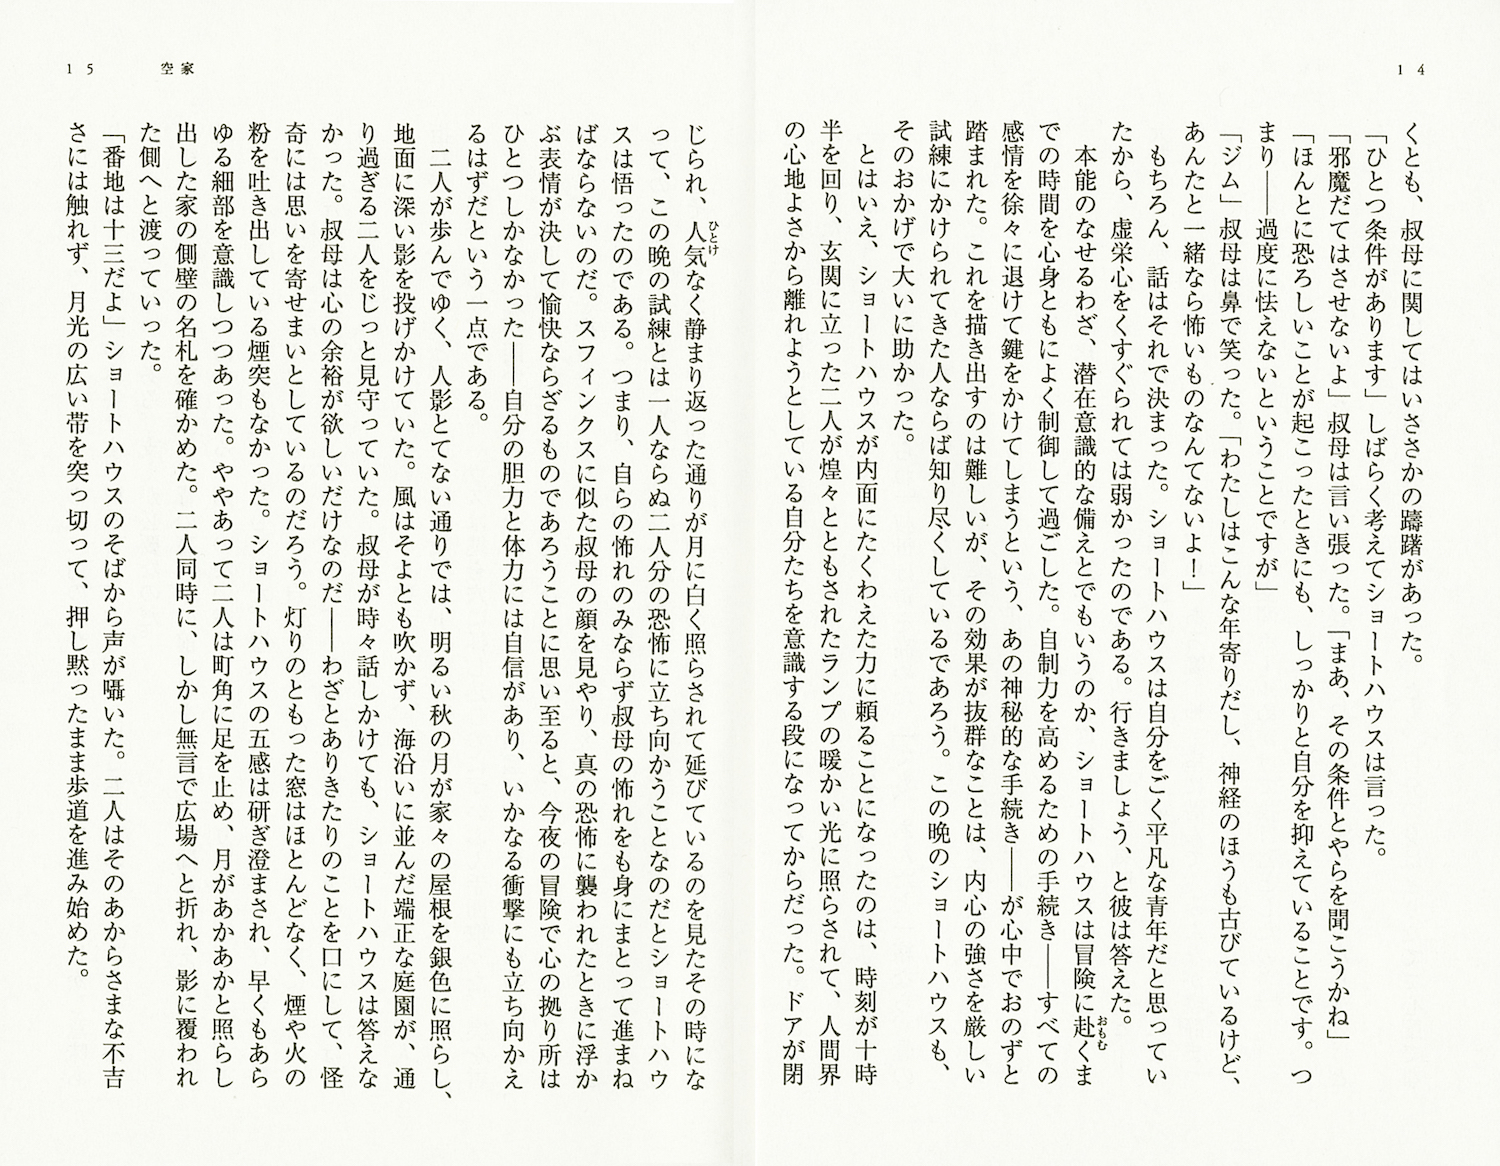 14
くとも、叔母に関してはいささかの躊躇があった。
「ひとつ条件があります」しばらく考えてショートハウスは言った。
「邪魔だてはさせないよ」叔母は言い張った。「まあ、その条件とやらを聞こうかね」
「ほんとに恐ろしいことが起こったときにも、しっかりと自分を抑えていることです。つ
まり――過度に怯えないということですが」
「ジム」叔母は鼻で笑った。「わたしはこんな年寄りだし、神経のほうも古びているけど、
あんたと一緒なら怖いものなんてないよ！」
もちろん、話はそれで決まった。ショートハウスは自分をごく平凡な青年だと思ってい
たから、虚栄心をくすぐられては弱かったのである。行きましょう、と彼は答えた。
本能のなせるわざ、潜在意識的な備えとでもいうのか、ショートハウスは冒険に赴くま
おもむ
での時間を心身ともによく制御して過ごした。自制力を高めるための手続き――すべての
感情を徐々に退けて鍵をかけてしまうという、あの神秘的な手続き――が心中でおのずと
踏まれた。これを描き出すのは難しいが、その効果が抜群なことは、内心の強さを厳しい
試練にかけられてきた人ならば知り尽くしているであろう。この晩のショートハウスも、
そのおかげで大いに助かった。
とはいえ、ショートハウスが内面にたくわえた力に頼ることになったのは、時刻が十時
半を回り、玄関に立った二人が煌々とともされたランプの暖かい光に照らされて、人間界
の心地よさから離れようとしている自分たちを意識する段になってからだった。ドアが閉
じられ、人気なく静まり返った通りが月に白く照らされて延びているのを見たその時にな
ひとけ
って、この晩の試練とは一人ならぬ二人分の恐怖に立ち向かうことなのだとショートハウ
スは悟ったのである。つまり、自らの怖れのみならず叔母の怖れをも身にまとって進まね
ばならないのだ。スフィンクスに似た叔母の顔を見やり、真の恐怖に襲われたときに浮か
ぶ表情が決して愉快ならざるものであろうことに思い至ると、今夜の冒険で心の拠り所は
ひとつしかなかった――自分の胆力と体力には自信があり、いかなる衝撃にも立ち向かえ
るはずだという一点である。
二人が歩んでゆく、人影とてない通りでは、明るい秋の月が家々の屋根を銀色に照らし、
地面に深い影を投げかけていた。風はそよとも吹かず、海沿いに並んだ端正な庭園が、通
り過ぎる二人をじっと見守っていた。叔母が時々話しかけても、ショートハウスは答えな
かった。叔母は心の余裕が欲しいだけなのだ――わざとありきたりのことを口にして、怪
奇には思いを寄せまいとしているのだろう。灯りのともった窓はほとんどなく、煙や火の
粉を吐き出している煙突もなかった。ショートハウスの五感は研ぎ澄まされ、早くもあら
ゆる細部を意識しつつあった。ややあって二人は町角に足を止め、月があかあかと照らし
出した家の側壁の名札を確かめた。二人同時に、しかし無言で広場へと折れ、影に覆われ
た側へと渡っていった。
「番地は十三だよ」ショートハウスのそばから声が囁いた。二人はそのあからさまな不吉
さには触れず、月光の広い帯を突っ切って、押し黙ったまま歩道を進み始めた。
15 空家